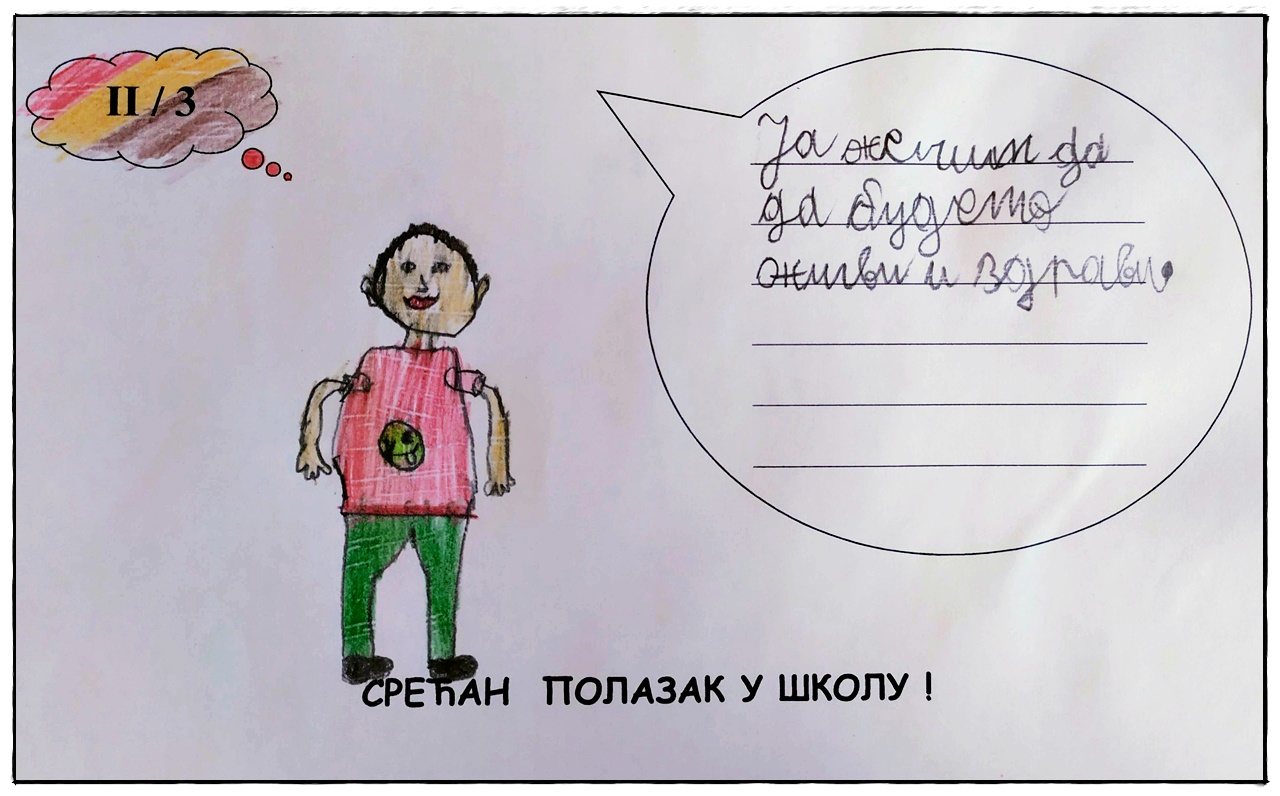 II / 3
Ја желим да
да будемо
живи и здрави.
СРЕЋАН ПОЛАЗАК У ШКОЛУ !